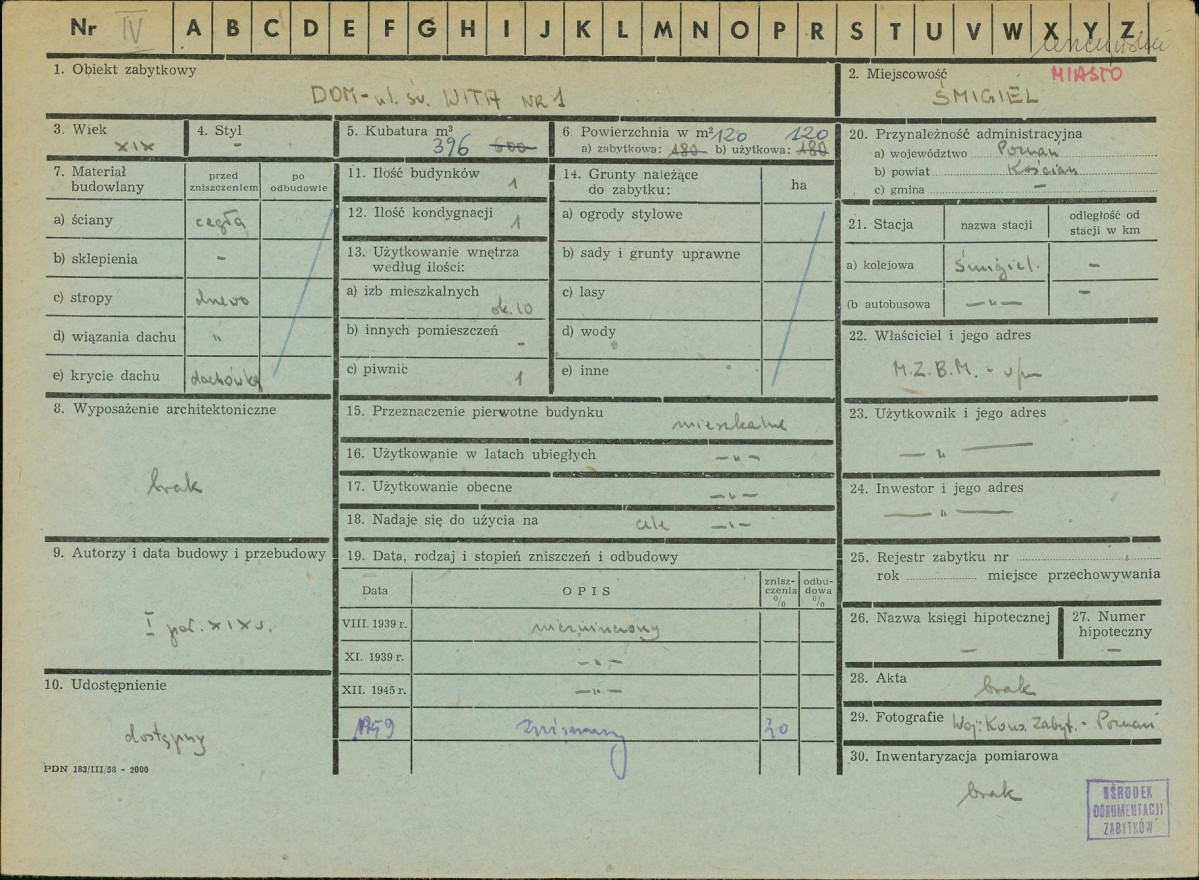 Nr IV A B C D E F G H I J K L M N O P R S T U V W X Y Z
1. Obiekt zabytkowy
DOM - ul. św. WITA NR 1
2. Miejscowość MIASTO
ŚMIGIEL
3. Wiek
XIX
4. Styl
-
5. Kubatura m³
396 600
6. Powierzchnia w m² 120 120
a) zabytkowa: 180 b) użytkowa: 180
7. Materiał budowlany
przed zniszczeniem
po odbudowie
a) ściany cegła
b) sklepienia -
c) stropy drewo
d) wiązania dachu "
e) krycie dachu dachówka
8. Wyposażenie architektoniczne
brak
9. Autorzy i data budowy i przebudowy
I poł. XIX w.
10. Udostępnienie
dostępny
PDN 183/III/58 - 2000
11. Ilość budynków 1
12. Ilość kondygnacji 1
13. Użytkowanie wnętrza
według ilości:
a) izb mieszkalnych ok. 10
b) innych pomieszczeń -
c) piwnic 1
14. Grunty należące
do zabytku:
ha
a) ogrody stylowe
b) sady i grunty uprawne
c) lasy
d) wody
e) inne
15. Przeznaczenie pierwotne budynku mieszkalne
16. Użytkowanie w latach ubiegłych -"-
17. Użytkowanie obecne -"-
18. Nadaje się do użycia na cele -"-
19. Data, rodzaj i stopień zniszczeń i odbudowy
Data OPIS zniszczenia % odbudowa %
VIII. 1939 r.
XI. 1939 r. -"-
XII. 1945 r. -"-
1959 30
20. Przynależność administracyjna
a) województwo Poznań
b) powiat Kościan
c) gmina -
21. Stacja nazwa stacji odległość od stacji w km
a) kolejowa Śmigiel. -
(b autobusowa -"- -
22. Właściciel i jego adres
M.Z.B.M. -
23. Użytkownik i jego adres
-"-
24. Inwestor i jego adres
-"-
25. Rejestr zabytku nr
rok miejsce przechowywania
26. Nazwa księgi hipotecznej
-
27. Numer hipoteczny
-
28. Akta
brak
29. Fotografie Woj. Kons. Zabyt. - Poznań
30. Inwentaryzacja pomiarowa
brak
OŚRODEK
DOKUMENTACJI
ZABYTKÓW